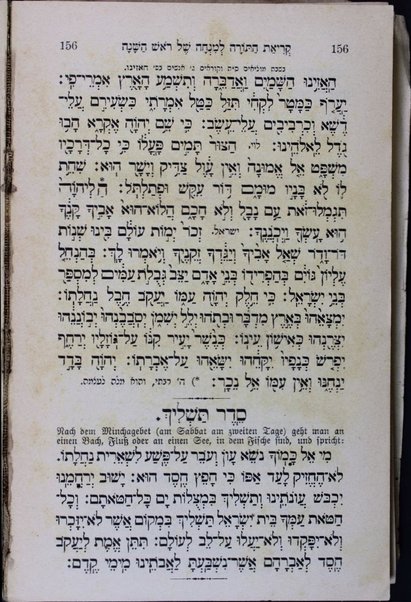 156 קריאת התורה למנחה של ראש השנה 156
בשבת מוציאים ס״ת וקוראים ג׳ אנשים בפ׳ האזינו.
הַאֲזִינוּ הַשָּׁמַיִם וַאֲדַבֵּרָה וְתִשְׁמַע הָאָרֶץ אִמְרֵי־פִי׃
יַעֲרֹף כַּמָּטָר לִקְחִי תִּזַּל כַּטַּל אִמְרָתִי כִּשְׂעִירִם עֲלֵי־
דֶשֶׁא וְכִרְבִיבִים עֲלֵי־עֵשֶׂב׃ כִּי שֵׁם יְהוָֹה אֶקְרָא הָבוּ
גֹדֶל לֵאלֹהֵינוּ׃ לוי. הַצּוּר תָּמִים פָּעֳלוֹ כִּי כָל־דְּרָכָיו
מִשְׁפָּט אֵל אֱמוּנָה וְאֵין עָוֶל צַדִּיק וְיָשָׁר הוּא׃ שִׁחֵת
לוֹ לֹא בָּנָיו מוּמָם דּוֹר עִקֵּשׁ וּפְתַלְתֹּל׃ הֲ לַיהוָֹה
תִּגְמְלוּ־זֹאת עַם נָבָל וְלֹא חָכָם הֲלוֹא־הוּא אָבִיךָ קָּנֶךָ
הוּא עָשְׂךָ וַיְכֹנְנֶךָ׃ ישראל. זְכֹר יְמוֹת עוֹלָם בִּינוּ שְׁנוֹת
דֹּר־וָדֹר שְׁאַל אָבִיךָ וְיַגֵּדְךָ זְקֵנֶיךָ וְיֹאמְרוּ לָךְ׃ בְּהַנְחֵל
עֶלְיוֹן גּוֹיִם בְּהַפְרִידוֹ בְּנֵי אָדָם יַצֵּב גְּבֻלֹת עַמִּים לְמִסְפַּר
בְּנֵי יִשְׂרָאֵל׃ כִּי חֵלֶק יְהוָֹה עַמּוֹ יַעֲקֹב חֶבֶל נַחֲלָתוֹ׃
יִמְצָאֵהוּ בְּאֶרֶץ מִדְבָּר וּבְתֹהוּ יְלֵל יְשִׁמֹן יְסֹבְבֶנְהוּ יְבוֹנְנֵהוּ
יִצְּרֶנְהוּ כְּאִישׁוֹן עֵינוֹ׃ כְּנֶשֶׁר יָעִיר קִנּוֹ עַל־גּוֹזָלָיו יְרַחֵף
יִפְרֹשׂ כְּנָפָיו יִקָּחֵהוּ יִשָּׂאֵהוּ עַל־אֶבְרָתוֹ׃ יְהוָֹה בָּדָד
יַנְחֶנּוּ וְאֵין עִמּוֹ אֵל נֵכָר׃ *) ה׳ רבתי, והוא מלה לעלמה.
סֵדֶר תַּשְׁלִיךְ.
Nach dem Minchagebet (am Sabbat am zweiten Tage) geht man an
einen Bach, Fluß oder an einen See, in dem Fische sind, und spricht:
מִי אֵל כָּמוֹךָ נֹשֵׂא עָוֹן וְעֹבֵר עַל־פֶּשַׁע לִשְׁאֵרִית נַחֲלָתוֹ.
לֹא־הֶחֱזִיק לָעַד אַפּוֹ כִּי חָפֵץ חֶסֶד הוּא׃ יָשׁוּב יְרַחֲמֵנוּ
יִכְבֹּשׁ עֲוֹנֹתֵינוּ וְתַשְׁלִיךְ בִּמְצֻלוֹת יָם כָּל־חַטֹּאתָם׃ וְכָל־
חַטֹּאת עַמְּךָ בֵּית־יִשְׂרָאֵל תַּשְׁלִיךְ בִּמְקוֹם אֲשֶׁר לֹא־יִזָּכְרוּ
וְלֹא־יִפָּקְדוּ וְלֹא־יַעֲלוּ עַל־לֵב לְעוֹלָם׃ תִּתֵּן אֱמֶת לְיַעֲקֹב
חֶסֶד לְאַבְרָהָם אֲשֶׁר־נִשְׁבַּעְתָּ לַאֲבֹתֵינוּ מִימֵי קֶדֶם׃